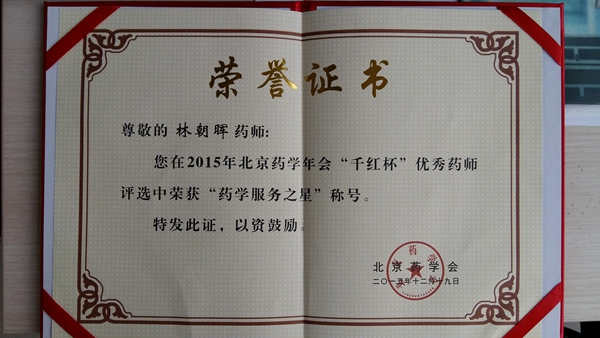 荣誉证书
尊敬的 林朝晖 药师:
您在2015年北京药学年会“千红杯”优秀药师
评选中荣获“药学服务之星”称号。
特发此证，以资鼓励。
北京药学会
二〇一五年十二月十九日